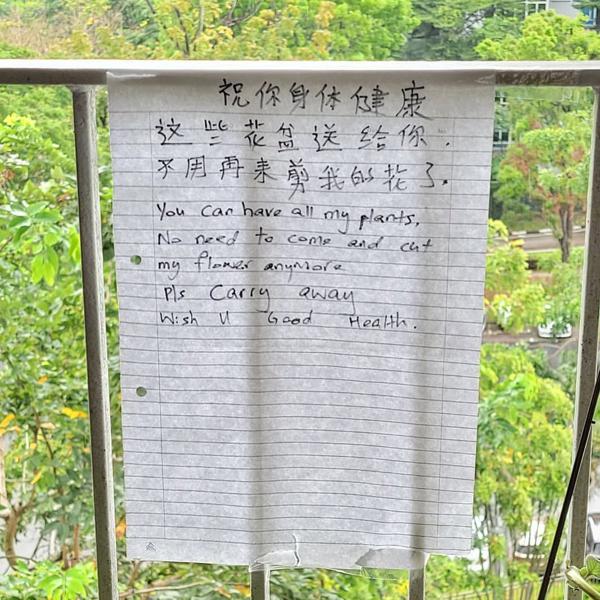 祝你身体健康
这些花盆送给你.
不用再来剪我的花了.
You can have all my plants,
No need to come and cut
my flower anymore
Pls Carry away
Wish U Good Health.